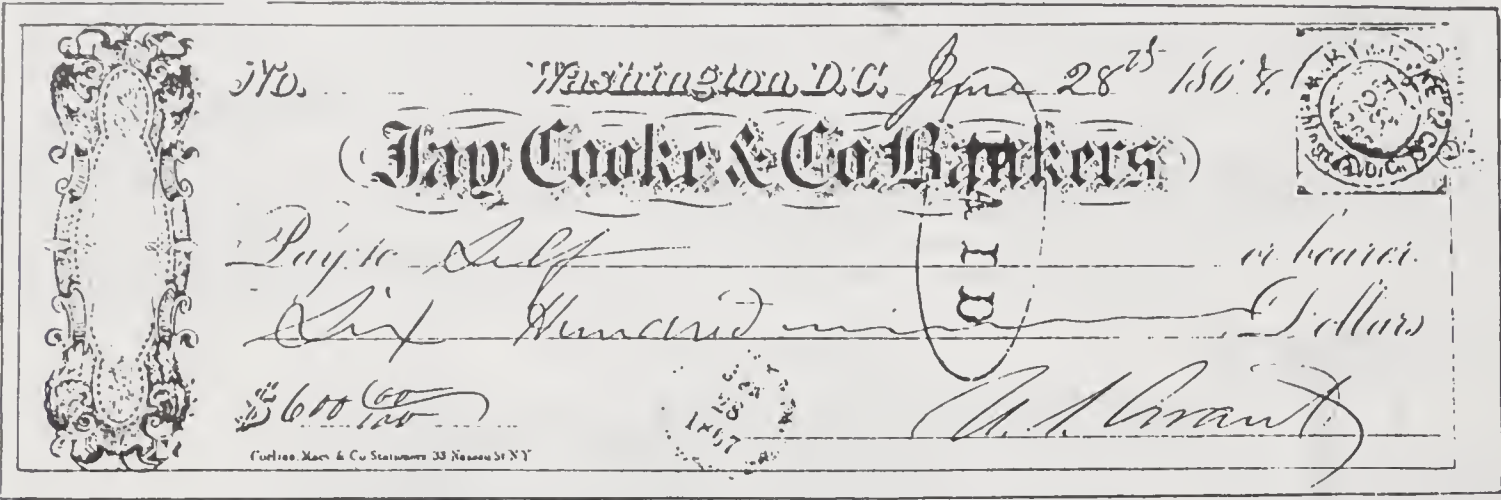 No. Washington, D.C. June 28th 1867
Jay Cooke & Co. Bankers
Pay to Self or bearer
Six Hundred Dollars
$600 00/100
PAID
28
1867
U. S. Grant
Corlies, Macy & Co Stationers 33 Nassau St N Y